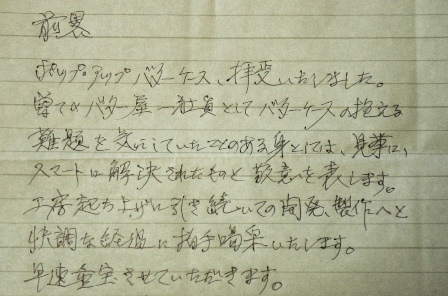 前略
ポップ・アップバターケース、拝受いたしました。
嘗てはバター屋一社員としてバターケースの抱える
難題を気にしていたことのある身としては、見事に、
スマートに解決されたものと敬意を表します。
工房起ち上げに引き続いての開発、製作へと
快調な経過に拍手喝采いたします。
早速重宝させていただきます。